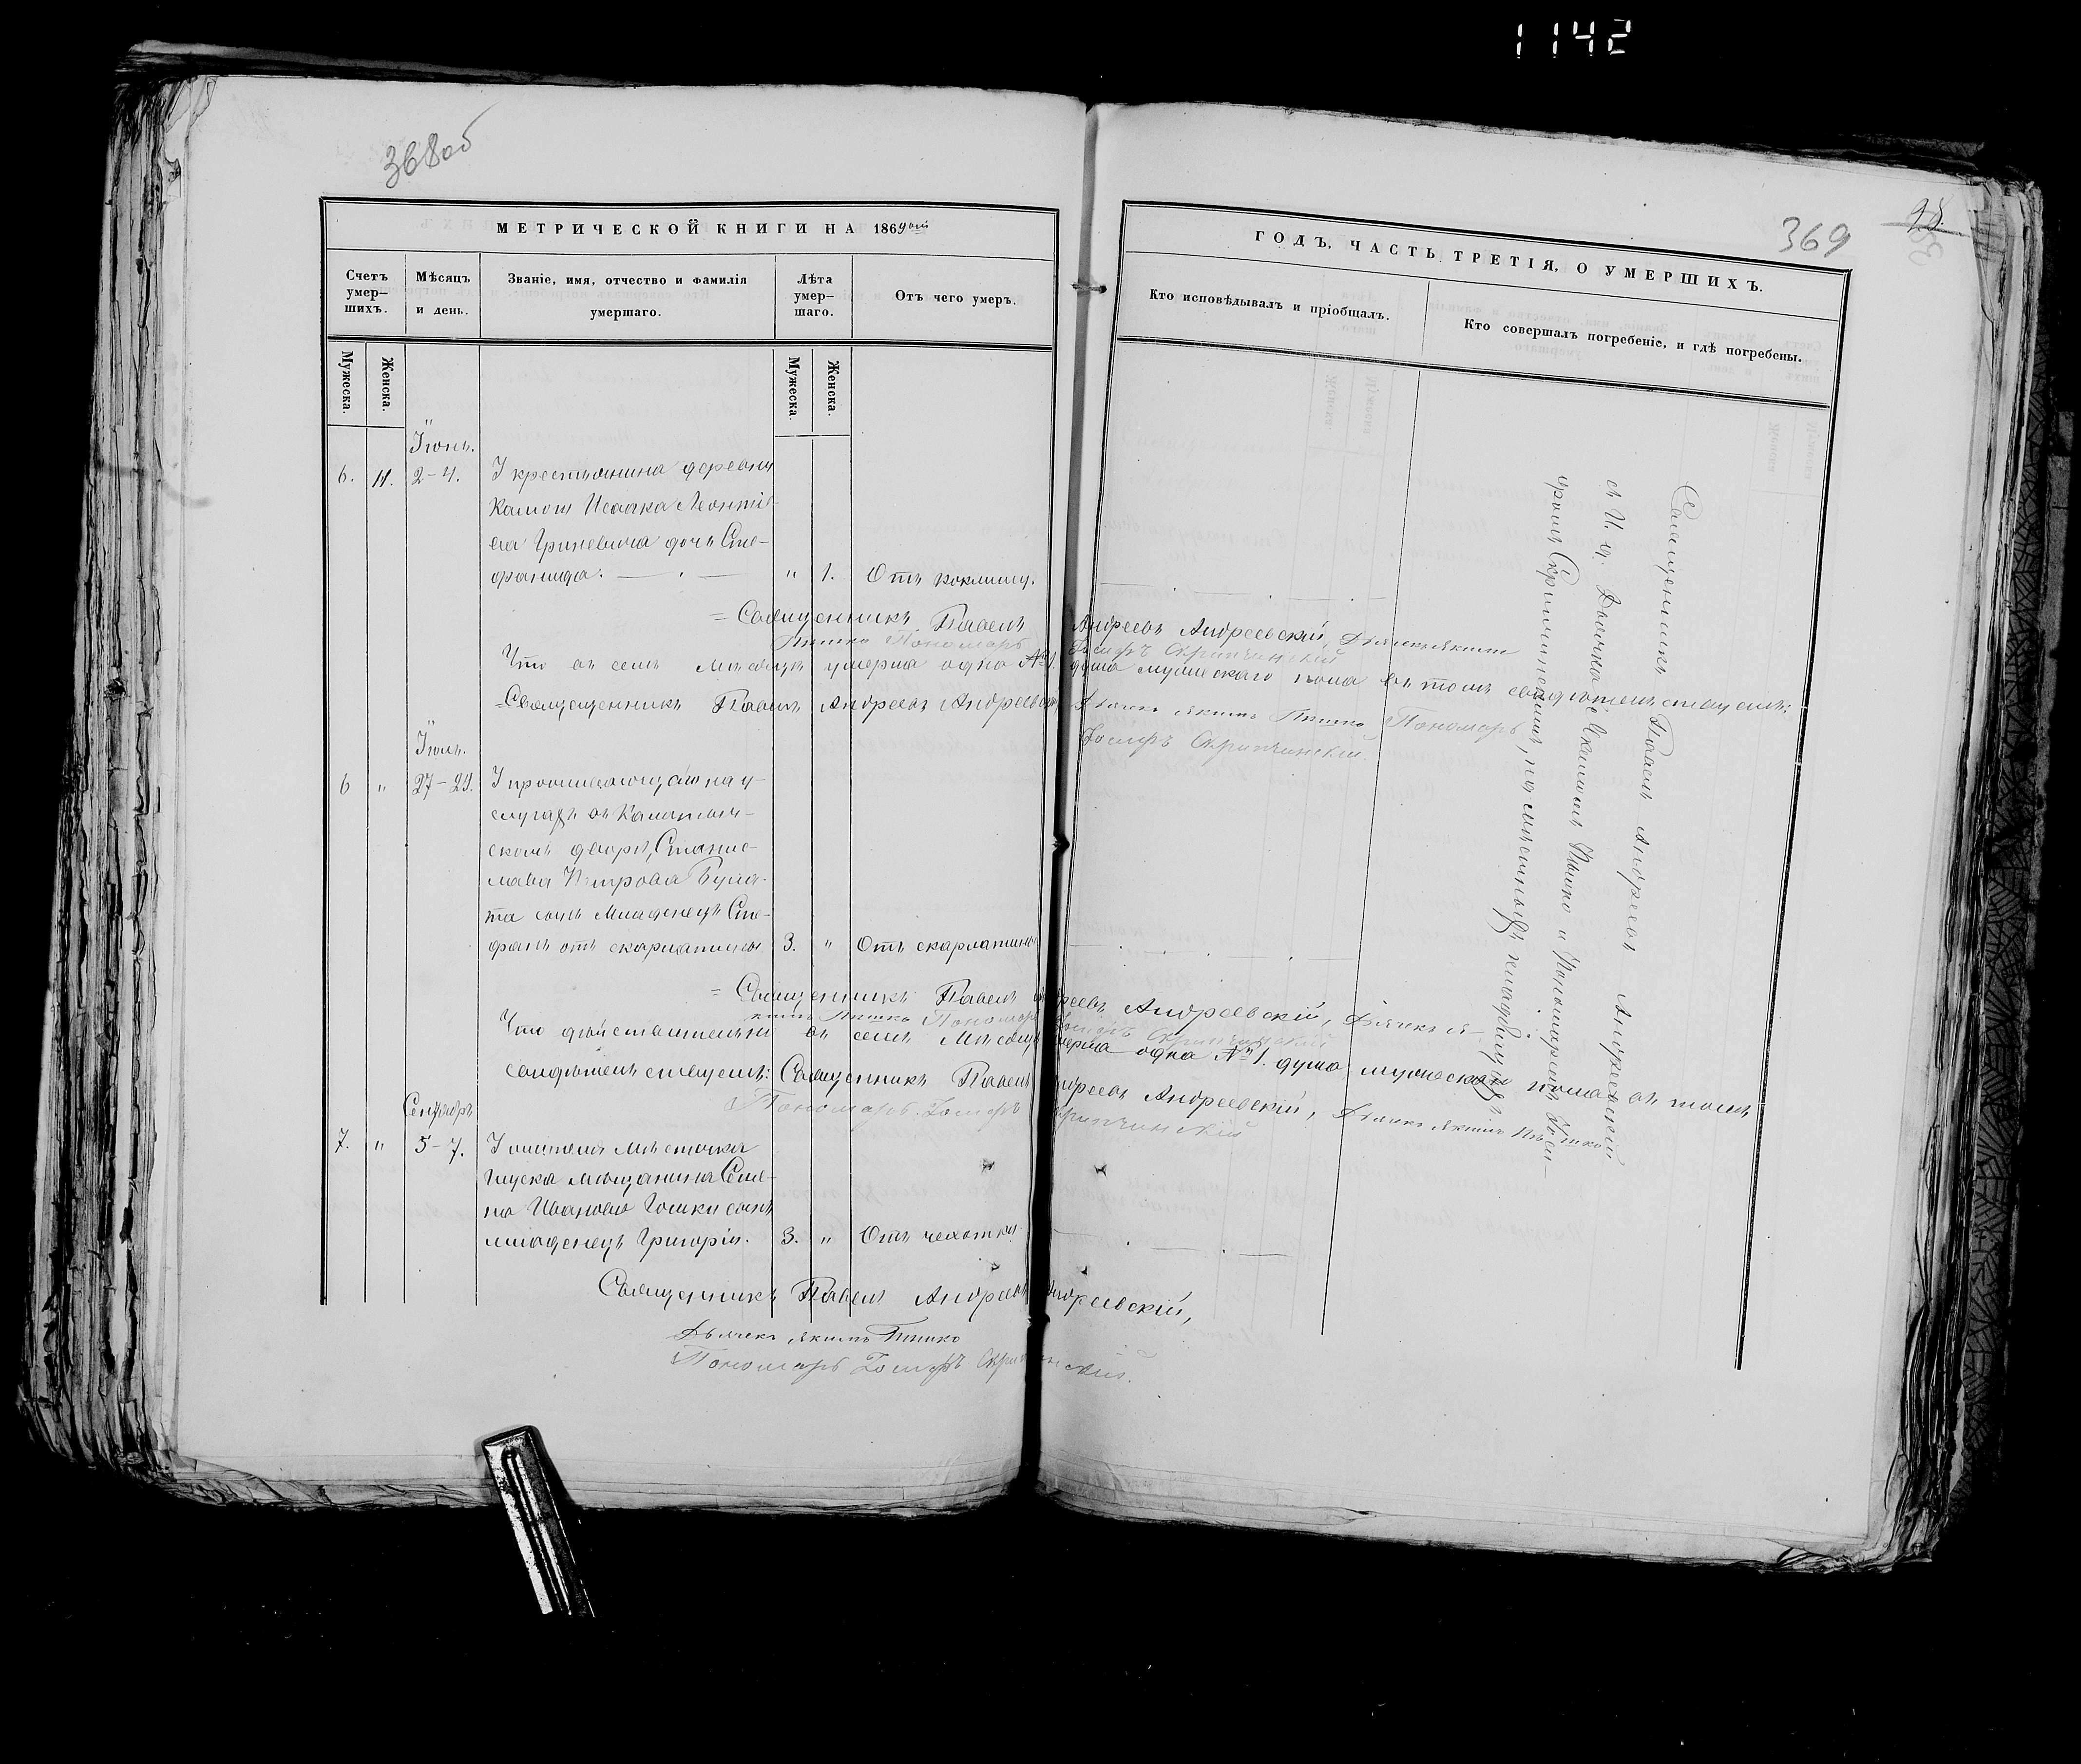 1142
368об
МЕТРИЧЕСКОЙ КНИГИ НА 1869 ой
Счетъ умер-
шихъ.
Мѣсяцъ
и день.
Званіе, имя, отчество и фамилія
умершаго.
Лѣта
умер-
шаго.
Отъ чего умеръ.
Мужеска.
Женска.
Мужеска.
Женска.
Іюнь.
6. 11. 2-4. У крестьянина деревни
Исаака Леонтіе-
ва Гриневича дочь Сте-
фанида. " 1. Отъ коклюшу.
= Священникъ Павелъ Андреевъ Андреевскій, Дьячекъ Якимъ
Пышко Пономарь Іосифъ Скрипчинскій
Что въ семъ мѣсяцѣ умерла одна № 1. душа мужескаго пола въ томъ свидѣтельствуемъ:
= Священникъ Павелъ Андреевъ Андреевскій Дьячекъ Якимъ Пышко Пономарь
Іосифъ Скрипчинскій
Іюль.
6 " 27-29. У проживающаго на у-
слугахъ въ
скомъ дворѣ, Станис-
лава Петрова
та сынъ младенецъ Сте-
фанъ отъ скарлатины 3. " Отъ скарлатины
= Священникъ Павелъ Андреевъ Андреевскій, Дьячекъ Я-
кимъ Пышко Пономарь Іосифъ Скрипчинскій
Что дѣйствительно въ семъ мѣсяцѣ умерла одна № 1. душа мужескаго пола въ томъ
свидѣтельствуемъ: Священникъ Павелъ Андреевъ Андреевскій, Дьячекъ Якимъ Пышко
Пономарь Іосифъ Скрипчинскій
Сентябрь
7. " 5-7. У жителя мѣстечка
мѣщанина
Иванова сынъ
младенецъ Григорій. 3. " Отъ чахотки.
Священникъ Павелъ Андреевъ Андреевскій,
Дьячекъ Якимъ Пышко
Пономарь Іосифъ Скрипчинскій.
369
ГОДЪ, ЧАСТЬ ТРЕТІЯ, О УМЕРШИХЪ.
Кто исповѣдывалъ и пріобщалъ.
Кто совершалъ погребеніе, и гдѣ погребены.
Священникъ Павелъ Андреевъ Андреевскій
съ И. д. Дьячка Якимомъ Пышко и Пономаремъ Іоси-
фомъ Скрипчинскимъ, на мѣстныхъ кладбищахъ